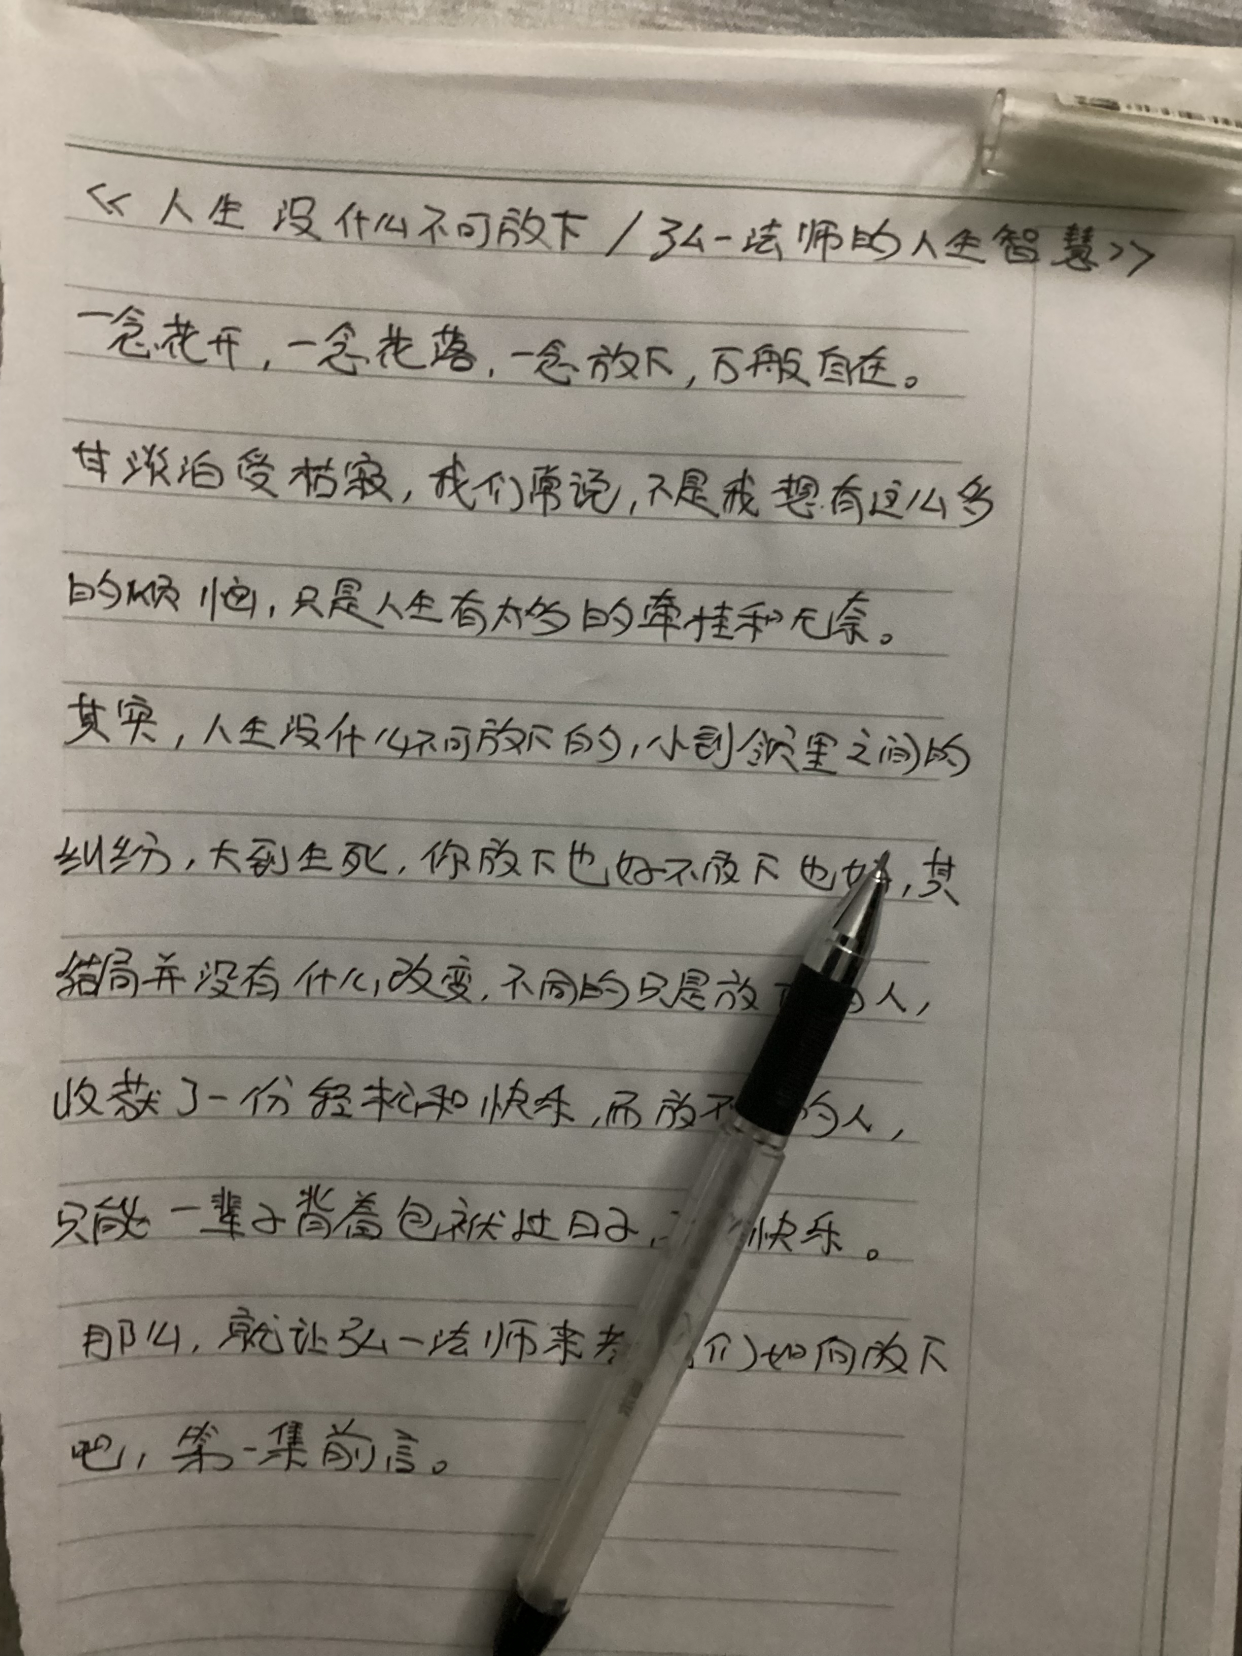 《人生没什么不可放下/弘一法师的人生智慧》
一念花开，一念花落，一念放下，万般自在。
甘淡泊受枯寂，我们常说，不是我想有这么多
的烦恼，只是人生有太多的牵挂和无奈。
其实，人生没什么不可放下的，小到邻里之间的
纠纷，大到生死，你放下也好不放下也好，其
结局并没有什么改变，不同的只是放人，
收获了一份轻松和快乐，而放不的人，
只能一辈子背着包袱过日子，快乐。
那么，就让弘一法师来们如何放下
吧，第一集前言。